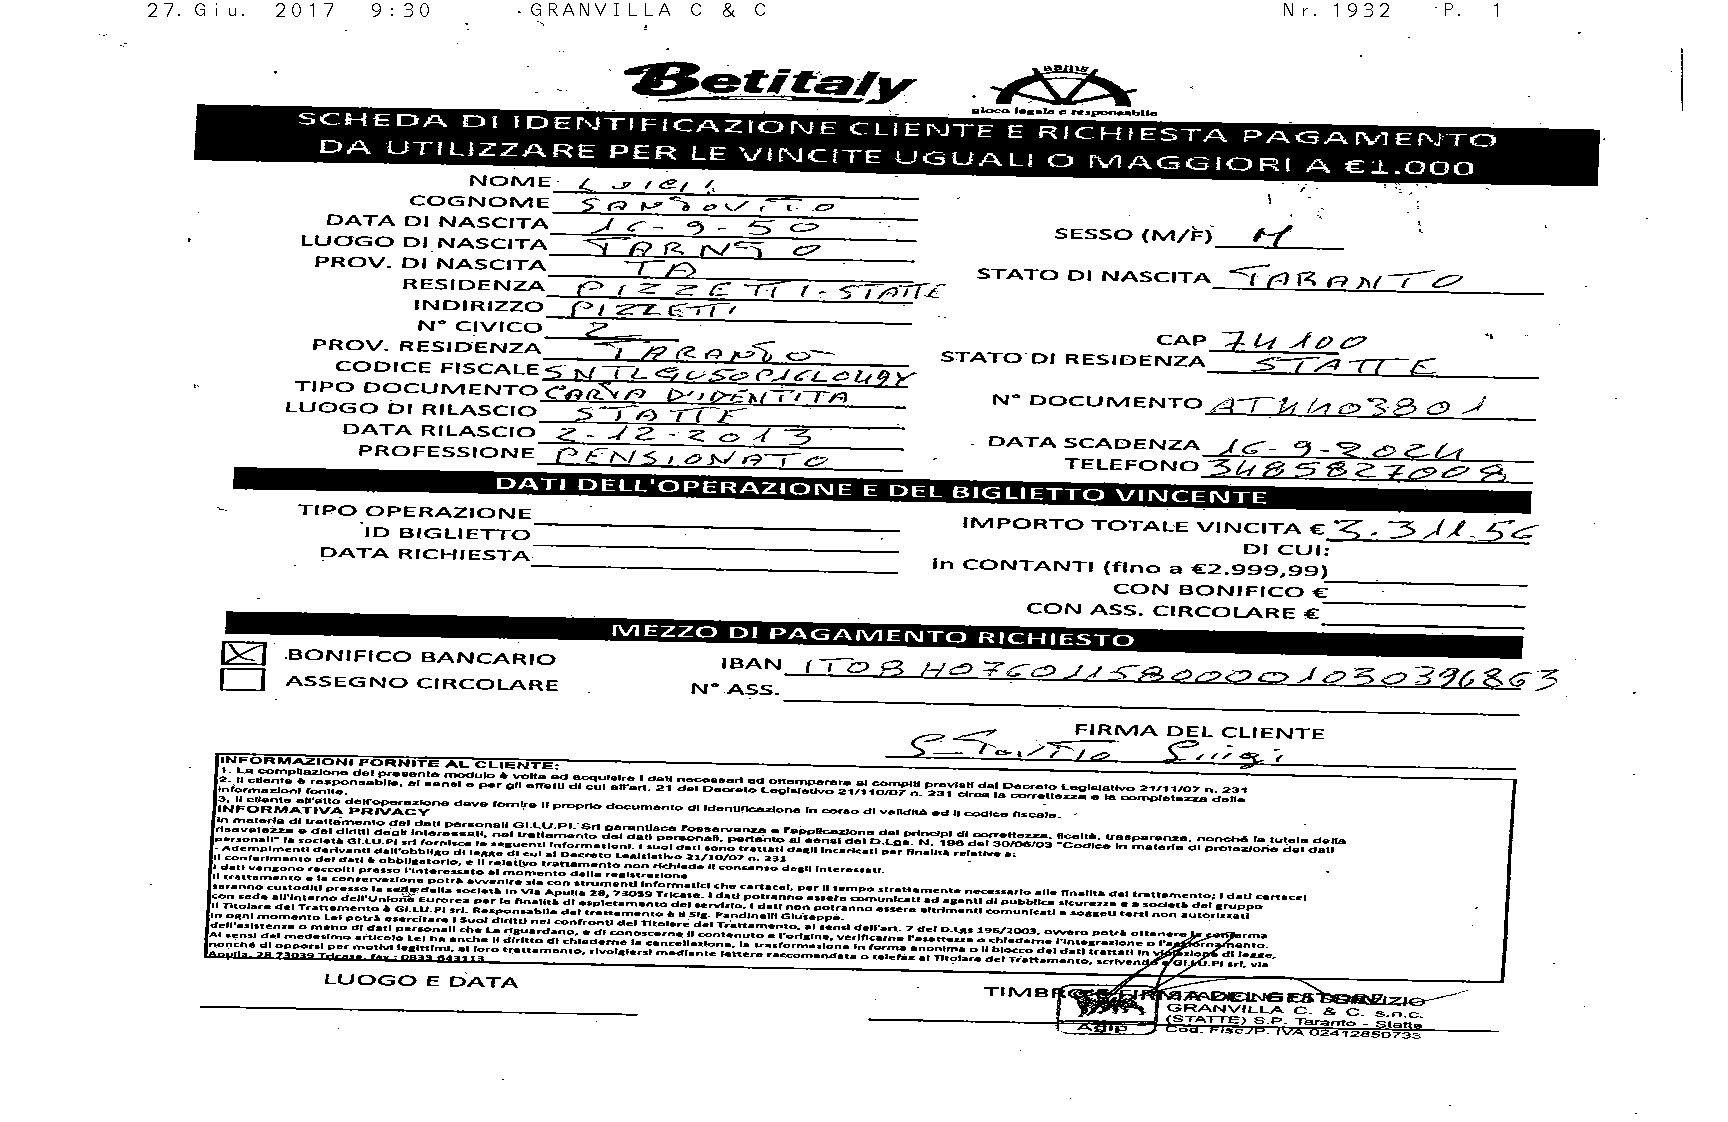 27. Giu. 2017 9:30 GRANVILLA C & C Nr. 1932 P. 1
Betitaly
gioco legale e responsabile
SCHEDA DI IDENTIFICAZIONE CLIENTE E RICHIESTA PAGAMENTO
DA UTILIZZARE PER LE VINCITE UGUALI O MAGGIORI A €1.000
NOME LUIGI
COGNOME SANTOVITO
DATA DI NASCITA 16-9-50
SESSO (M/F) M
LUOGO DI NASCITA
PROV. DI NASCITA TA
STATO DI NASCITA TARANTO
RESIDENZA PIZZETTI-STATTE
INDIRIZZO PIZZETTI
N° CIVICO 2
CAP 74100
PROV. RESIDENZA TARANTO
STATO DI RESIDENZA STATTE
CODICE FISCALE SNTLGU50P16L049Y
TIPO DOCUMENTO CARTA D'IDENTITA
N° DOCUMENTO AT4403801
LUOGO DI RILASCIO STATTE
DATA RILASCIO 2-12-2013
DATA SCADENZA 16-9-2024
PROFESSIONE PENSIONATO
TELEFONO 3485827008
DATI DELL'OPERAZIONE E DEL BIGLIETTO VINCENTE
TIPO OPERAZIONE
IMPORTO TOTALE VINCITA € 3.311.56
ID BIGLIETTO
DI CUI:
DATA RICHIESTA
in CONTANTI (fino a €2.999,99)
CON BONIFICO €
CON ASS. CIRCOLARE €
MEZZO DI PAGAMENTO RICHIESTO
BONIFICO BANCARIO
IBAN IT08H0760115800001030396863
ASSEGNO CIRCOLARE
N° ASS.
FIRMA DEL CLIENTE
Luigi
INFORMAZIONI FORNITE AL CLIENTE:
1. La compilazione del presente modulo è volta ad acquisire i dati necessari ad ottemperare ai compiti previsti dal Decreto Legislativo 21/11/07 n. 231
2. Il cliente è responsabile, ai sensi e per gli effetti di cui all'art. 21 del Decreto Legislativo 21/10/07 n. 231 circa la correttezza e la completezza delle
informazioni fonite.
3. Il cliente all'atto dell'operazione deve fornire il proprio documento di identificazione in corso di validità ed il codice fiscale.
INFORMATIVA PRIVACY
In materia di trattamento dei dati personali GI.LU.PI. Srl garantisce l'osservanza e l'applicazione dei principi di correttezza, liceità, trasparenza, nonché la tutela della
riservatezza e dei diritti degli interessati, nel trattamento dei dati personali, pertanto ai sensi del D.Lgs. N. 196 del 30/06/03 "Codice in materia di protezione dei dati
personali" la società GI.LU.PI srl fornisce le seguenti informazioni. I suoi dati sono trattati dagli incaricati per finalità relative a:
- Adempimenti derivanti dall'obbligo di legge di cui al Decreto Legislativo 21/10/07 n. 231
Il conferimento dei dati è obbligatorio, e il relativo trattamento non richiede il consenso degli interessati.
I dati vengono raccolti presso l'interessato al momento della registrazione
Il trattamento e la conservazione potrà avvenire sia con strumenti informatici che cartacei, per il tempo strettamente necessario alle finalità del trattamento; I dati cartacei
saranno custoditi presso la sede della società in Via Apulia 28, 73039 Tricase. I dati potranno essere comunicati ad agenti di pubblica sicurezza e a società del gruppo
con sede all'interno dell'Unione Europea per la finalità di espletamento del servizio. I dati non potranno essere altrimenti comunicati a soggetti terzi non autorizzati
Il Titolare del Trattamento è GI.LU.PI srl. Responsabile del trattamento è il Sig. Fandinelli Giuseppe.
In ogni momento Lei potrà esercitare i Suoi diritti nei confronti del Titolare del Trattamento, ai sensi dell'art. 7 del D.Lgs 196/2003, ovvero potrà ottenere la conferma
dell'esistenza o meno di dati personali che La riguardano, e di conoscerne il contenuto e l'origine, verificarne l'esattezza o chiederne l'integrazione o l'aggiornamento.
Ai sensi del medesimo articolo Lei ha anche il diritto di chiederne la cancellazione, la trasformazione in forma anonima o il blocco dei dati trattati in violazione di legge,
nonché di opporsi per motivi legittimi, al loro trattamento, rivolgersi mediante lettera raccomandata o telefax al Titolare del Trattamento, scrivendo a GI.LU.PI srl, via
Apulia, 28 73039 Tricase, fax: 0833 643113
LUOGO E DATA
TIMBRO E FIRMA
GRANVILLA C. & C. s.n.c.
(STATTE) S.P. Taranto - Statte
Cod. Fisc./P. IVA 02412850733